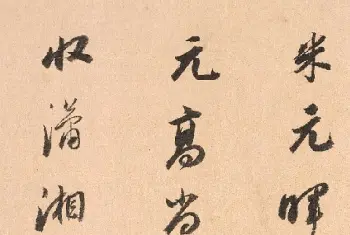 米元暉
元高尚
收瀟湘